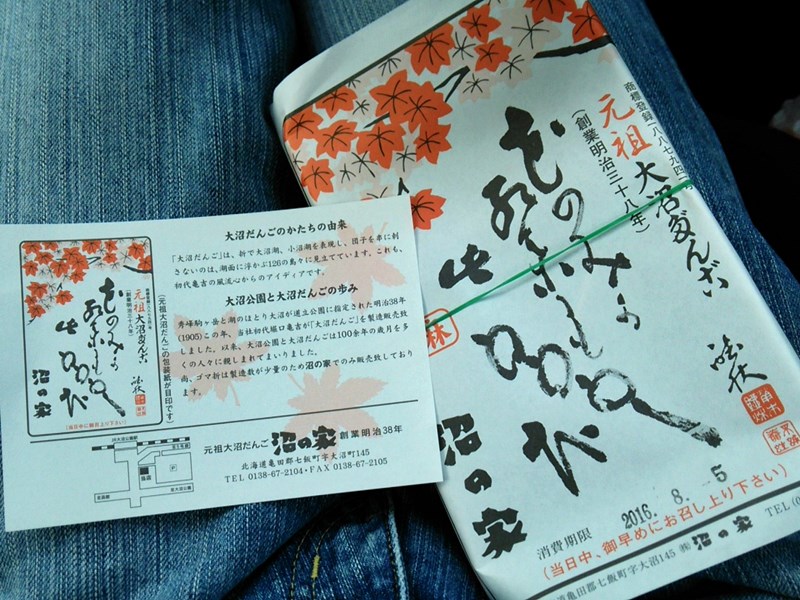 大沼だんごのかたちの由来
「大沼だんご」は、折で大沼湖、小沼湖を表現し、団子を串に刺
さないのは、湖面に浮かぶ126の島々に見立てています。これも、
初代亀吉の風流心からのアイディアです。
大沼公園と大沼だんごの歩み
秀峰駒ヶ岳と湖のほとり大沼が道立公園に指定された明治38年
(1905)この年、当社初代堀口亀吉が「大沼だんご」を製造販売致
しました。以来、大沼公園と大沼だんごは100余年の歳月を多
くの人々に親しまれてまいりました。
尚、ゴマ折は製造数が少量のため沼の家でのみ販売致しており
ます。
(元祖大沼だんごの包装紙が目印です)
元祖大沼だんご
(創業明治三十八年)
沼の家
元祖大沼だんご 沼の家 創業明治38年
北海道亀田郡七飯町字大沼町145
TEL 0138-67-2104・FAX 0138-67-2105
商標登録(八八七九四二号
元祖大沼だんご
(創業明治三十八年)
林
沼の家
消費期限 2016. 8. -5
(当日中、御早めにお召し上り下さい)
道亀田郡七飯町字大沼145 ㈱ 沼の家 TEL (0